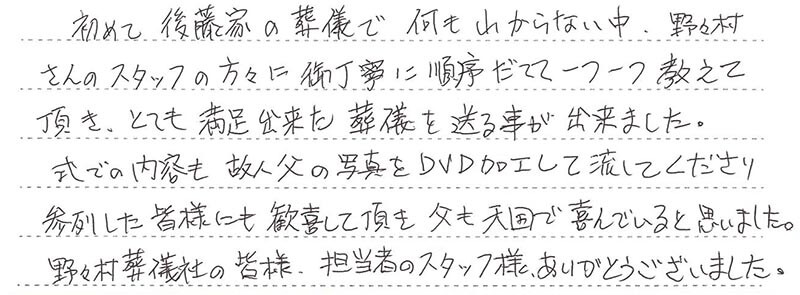 初めて後藤家の葬儀で何もわからない中、野々村
さんのスタッフの方々に御丁寧に順序だてて一つ一つ教えて
頂き、とても満足出来た葬儀を送る事が出来ました。
式での内容も故人父の写真をDVD加工して流してくださり
参列した皆様にも歓喜して頂き父も天国で喜んでいると思いました。
野々村葬儀社の皆様、担当者のスタッフ様、ありがとうございました。